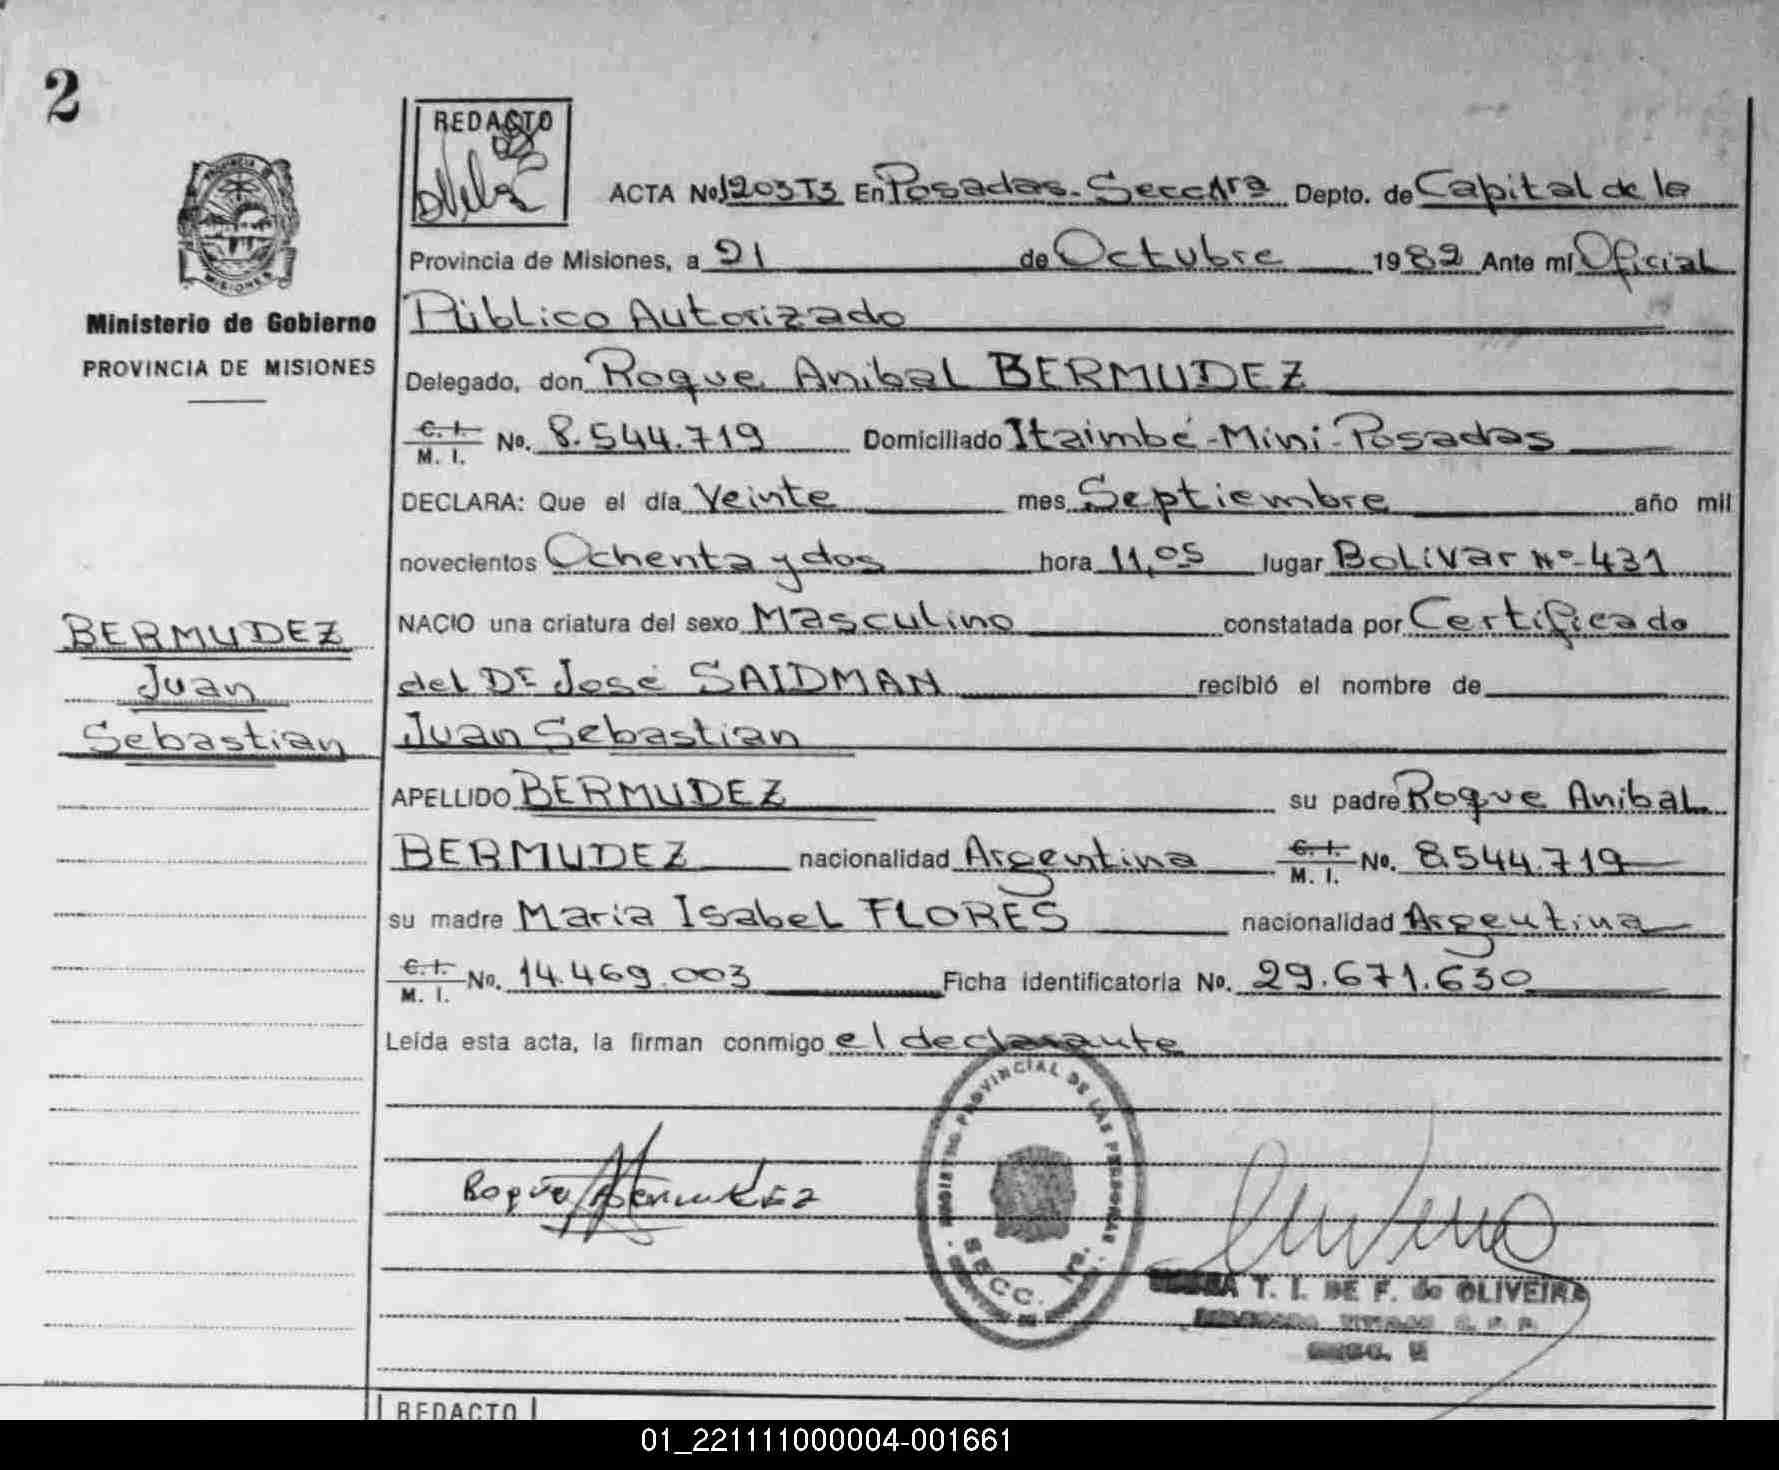 2
REDACTO
ACTA No. 1203T3 En Posadas - Secc 1ra Depto. de Capital de la
Provincia de Misiones, a 21 de Octubre 1982 Ante mí Oficial
Ministerio de Gobierno
PROVINCIA DE MISIONES
Público Autorizado
Delegado, don Roque Anibal BERMUDEZ
C. I.
M. I. No. 8.544.719 Domiciliado Itaimbé-Miní-Posadas
DECLARA: Que el día Veinte mes Septiembre año mil
novecientos Ochenta y dos hora 11,05 lugar Bolívar Nº-431
BERMUDEZ
Juan
Sebastian
NACIO una criatura del sexo Masculino constatada por Certificado
del Dr José SAIDMAN recibió el nombre de
Juan Sebastian
APELLIDO BERMUDEZ su padre Roque Anibal
BERMUDEZ nacionalidad Argentina C. I.
M. I. No. 8.544.719
su madre Maria Isabel FLORES nacionalidad Argentina
C. I.
M. I. No. 14.469.003 Ficha identificatoria No. 29.671.630
Leída esta acta, la firman conmigo el declarante
Roque Bermudez
REGISTRO PROVINCIAL DE LAS PERSONAS
SECC. 1ra.
T. I. DE F. de OLIVEIRA
REDACTO
01_221111000004-001661